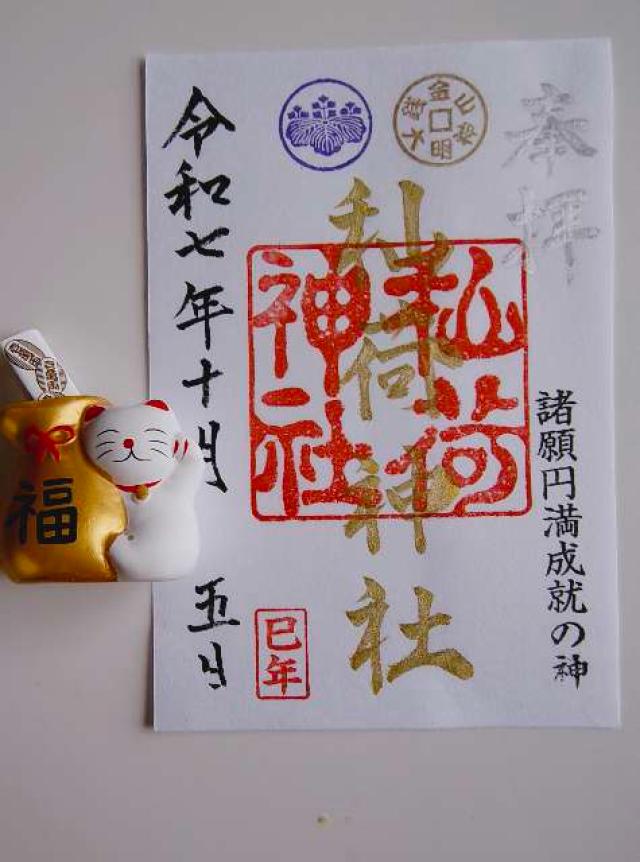 奉拝
諸願円満成就の神
荷神社
荷
神社
令和七年十月
五日
巳年
福